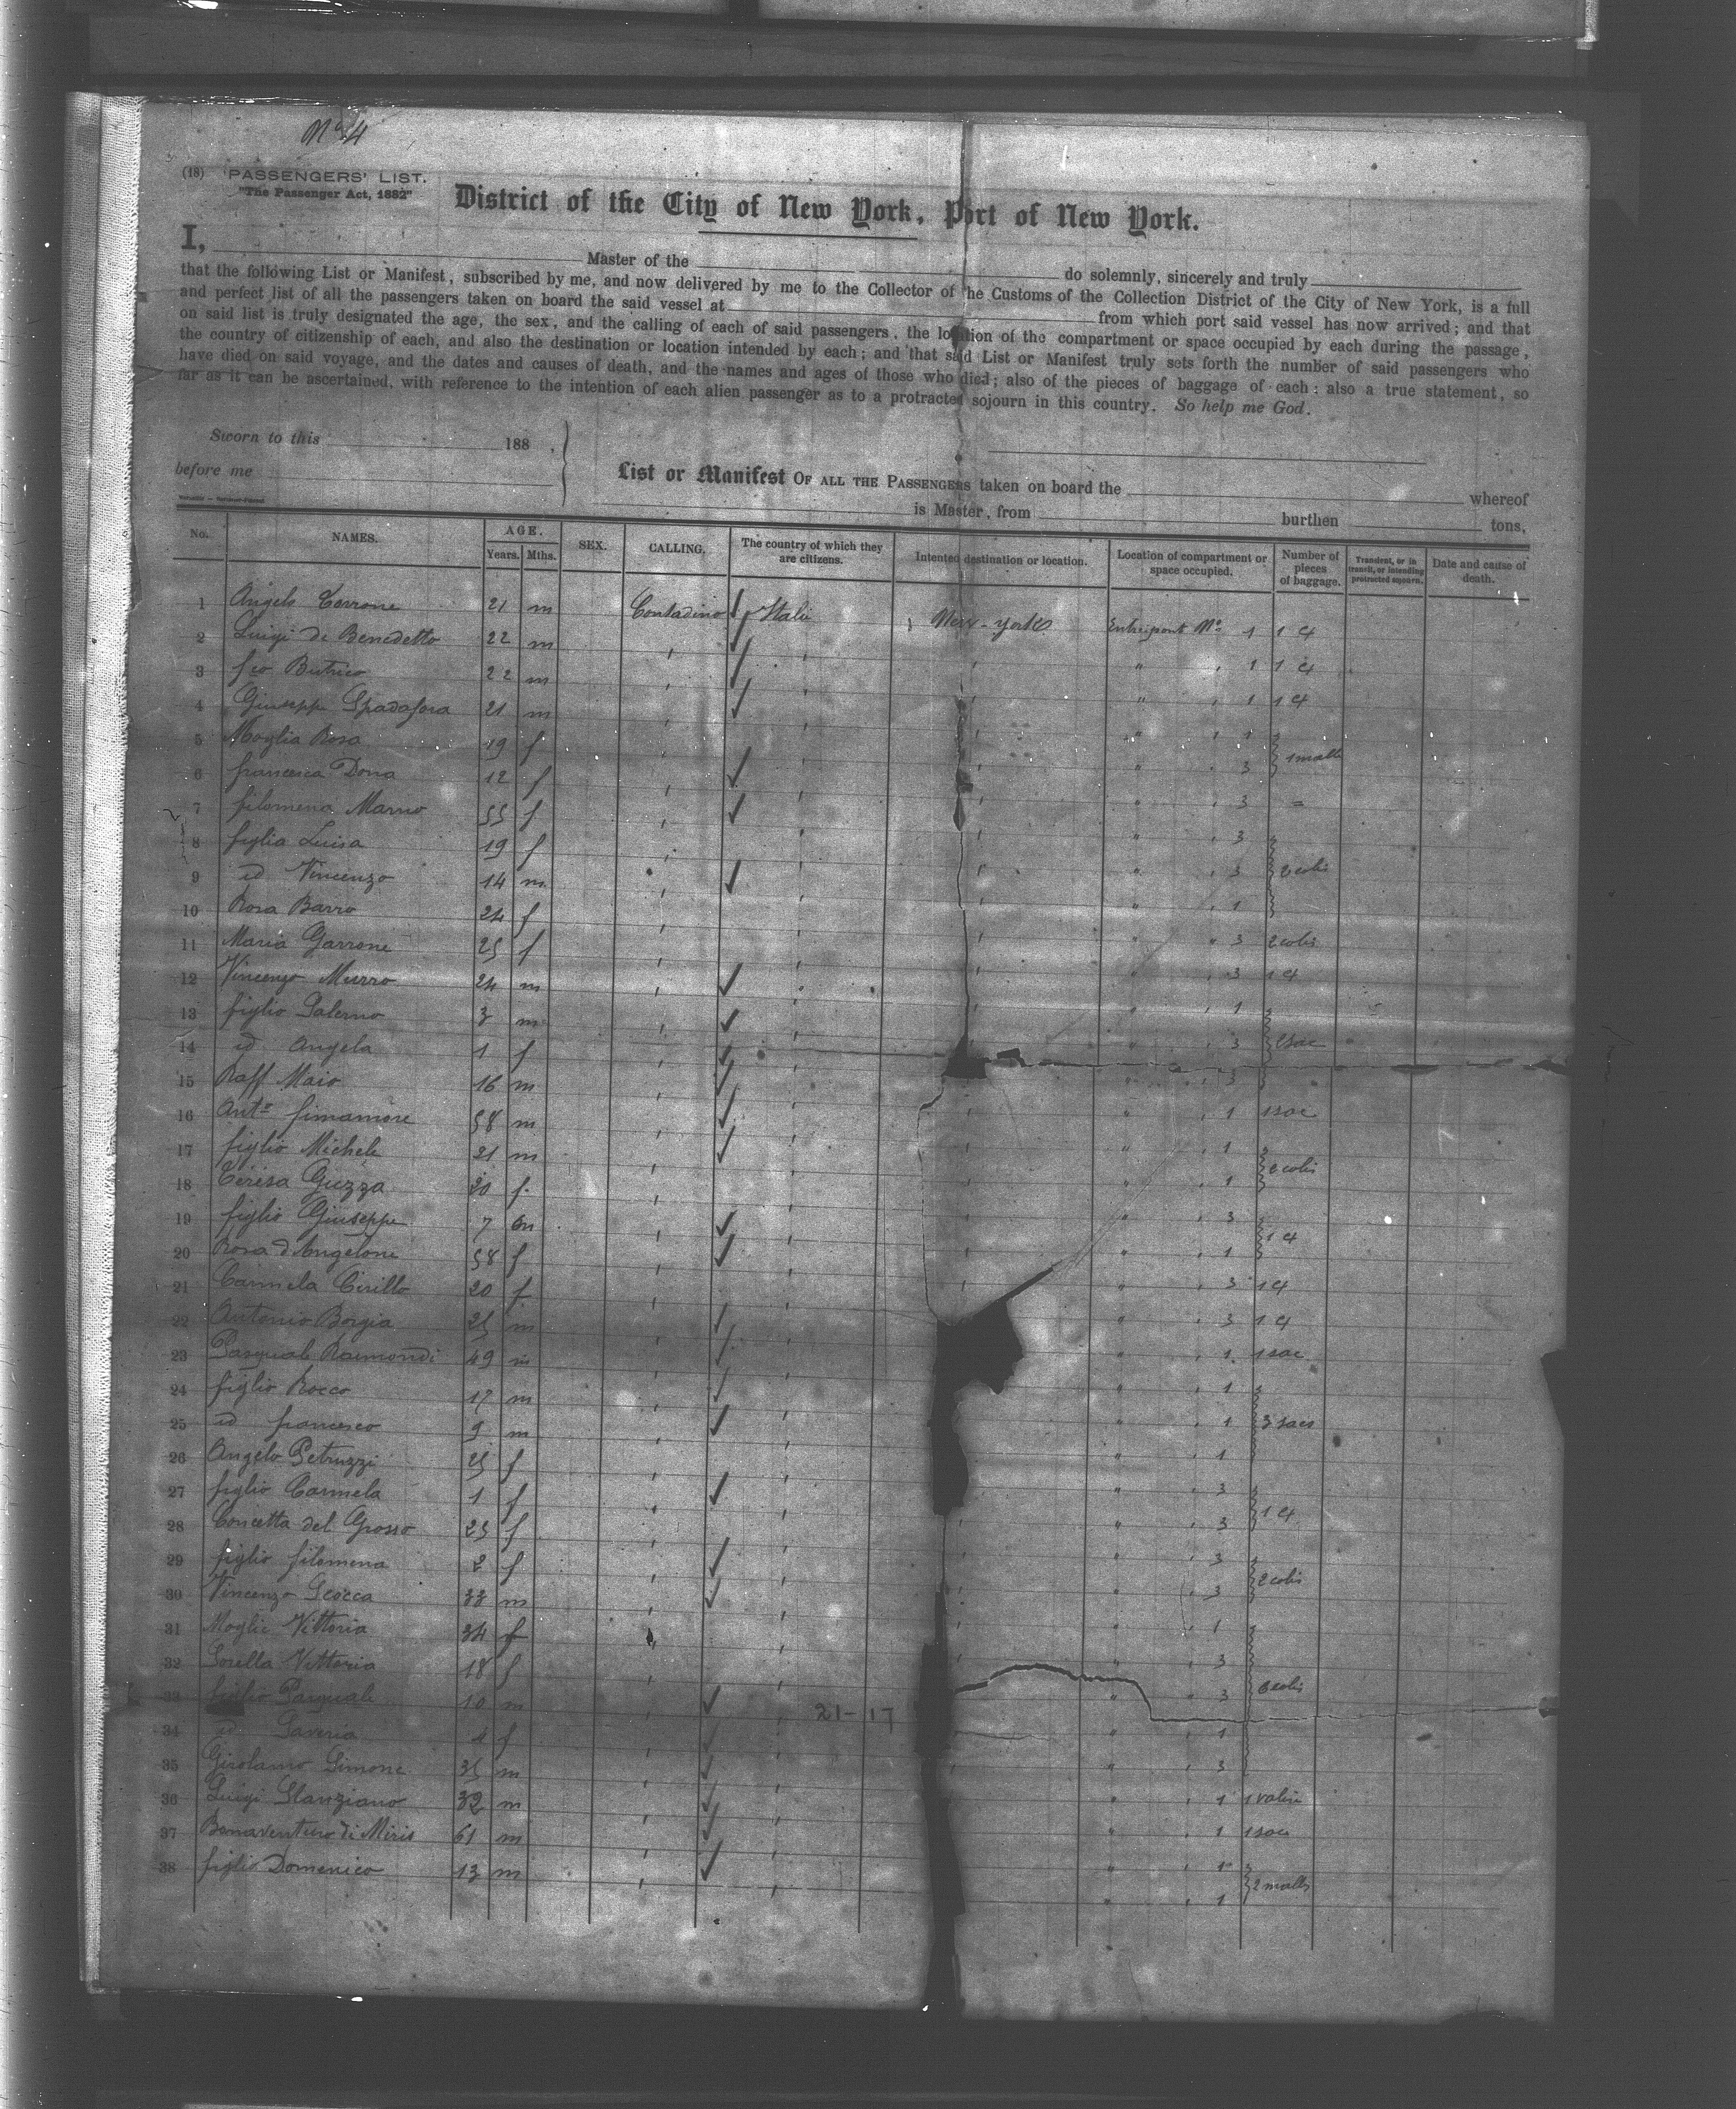 No 4
(18) PASSENGERS' LIST.
"The Passenger Act, 1882"
District of the City of New York, Port of New York.
I, Master of the do solemnly, sincerely and truly
that the following List or Manifest, subscribed by me, and now delivered by me to the Collector of the Customs of the Collection District of the City of New York, is a full
and perfect list of all the passengers taken on board the said vessel at from which port said vessel has now arrived; and that
on said list is truly designated the age, the sex, and the calling of each of said passengers, the location of the compartment or space occupied by each during the passage,
the country of citizenship of each, and also the destination or location intended by each; and that said List or Manifest truly sets forth the number of said passengers who
have died on said voyage, and the dates and causes of death, and the names and ages of those who died; also of the pieces of baggage of each: also a true statement, so
far as it can be ascertained, with reference to the intention of each alien passenger as to a protracted sojourn in this country. So help me God.
Sworn to this 188 .
before me
List or Manifest OF ALL THE PASSENGERS taken on board the whereof
is Master, from burthen tons,
No. NAMES. AGE. Years. Mths. SEX. CALLING. The country of which they are citizens. Intented destination or location. Location of compartment or space occupied. Number of pieces of baggage. Transient, or in transit, or intending protracted sojourn. Date and cause of death.
1 Angelo Cerrone 21 m Contadino Italie New-York Entrepont No 1 1 4
2 Luigi di Benedetto 22 m " 1 1 4
3 fco Butrico 22 m " 1 1 4
4 Giuseppe Spadafora 21 m " 1
5 Moglia Rosa 19 f " 3 1 malle
6 francesca Dona 12 f " 3 =
7 filomena Marno 55 f " 3
8 figlia Luisa 19 f " 3 2 colis
9 id Vincenzo 14 m " 1
10 Rosa Barro 24 f " 3 2 colis
11 Maria Garrone 25 f " 3 1 4
12 Vincenzo Murro 24 m " 1
13 figlio Palerno 3 m " 3 2 sac
14 id Angela 1 f " 3
15 Raff Maio 16 m " 1 1 sac
16 Anto fimamore 58 m " 1
17 figlio Michele 21 m " 1 2 colis
18 Teresa Guzza 20 f " 3
19 figlio Giuseppe 7 m " 1 1 4
20 Rosa d'Angelone 58 f " 3 1 4
21 Carmela Cirillo 20 f " 3 1 4
22 Antonio Borgia 25 m " 1 1 sac
23 Pasquale Raimondi 49 m " 1
24 figlio Rocco 17 m " 1 3 sacs
25 id francesco 9 m " 1
26 Angelo Petruzzi 25 f " 3
27 figlio Carmela 1 f " 3 1 4
28 Concetta del Grosso 25 f " 3
29 figlio filomena 2 f " 3 2 colis
30 Vincenzo Scocca 33 m " 1
31 Moglie Vittoria 34 f " 3
32 Sorella Vittoria 18 f " 3 6 colis
33 figlio Pasquale 10 m 21-17 " 1
34 id Saveria 4 f " 3
35 Girolamo Simone 35 m " 1 1 valise
36 Luigi Stanziano 32 m " 1 1 sac
37 Bonaventuro di Miris 61 m " 1
38 figlio Domenico 13 m " 1 2 malles